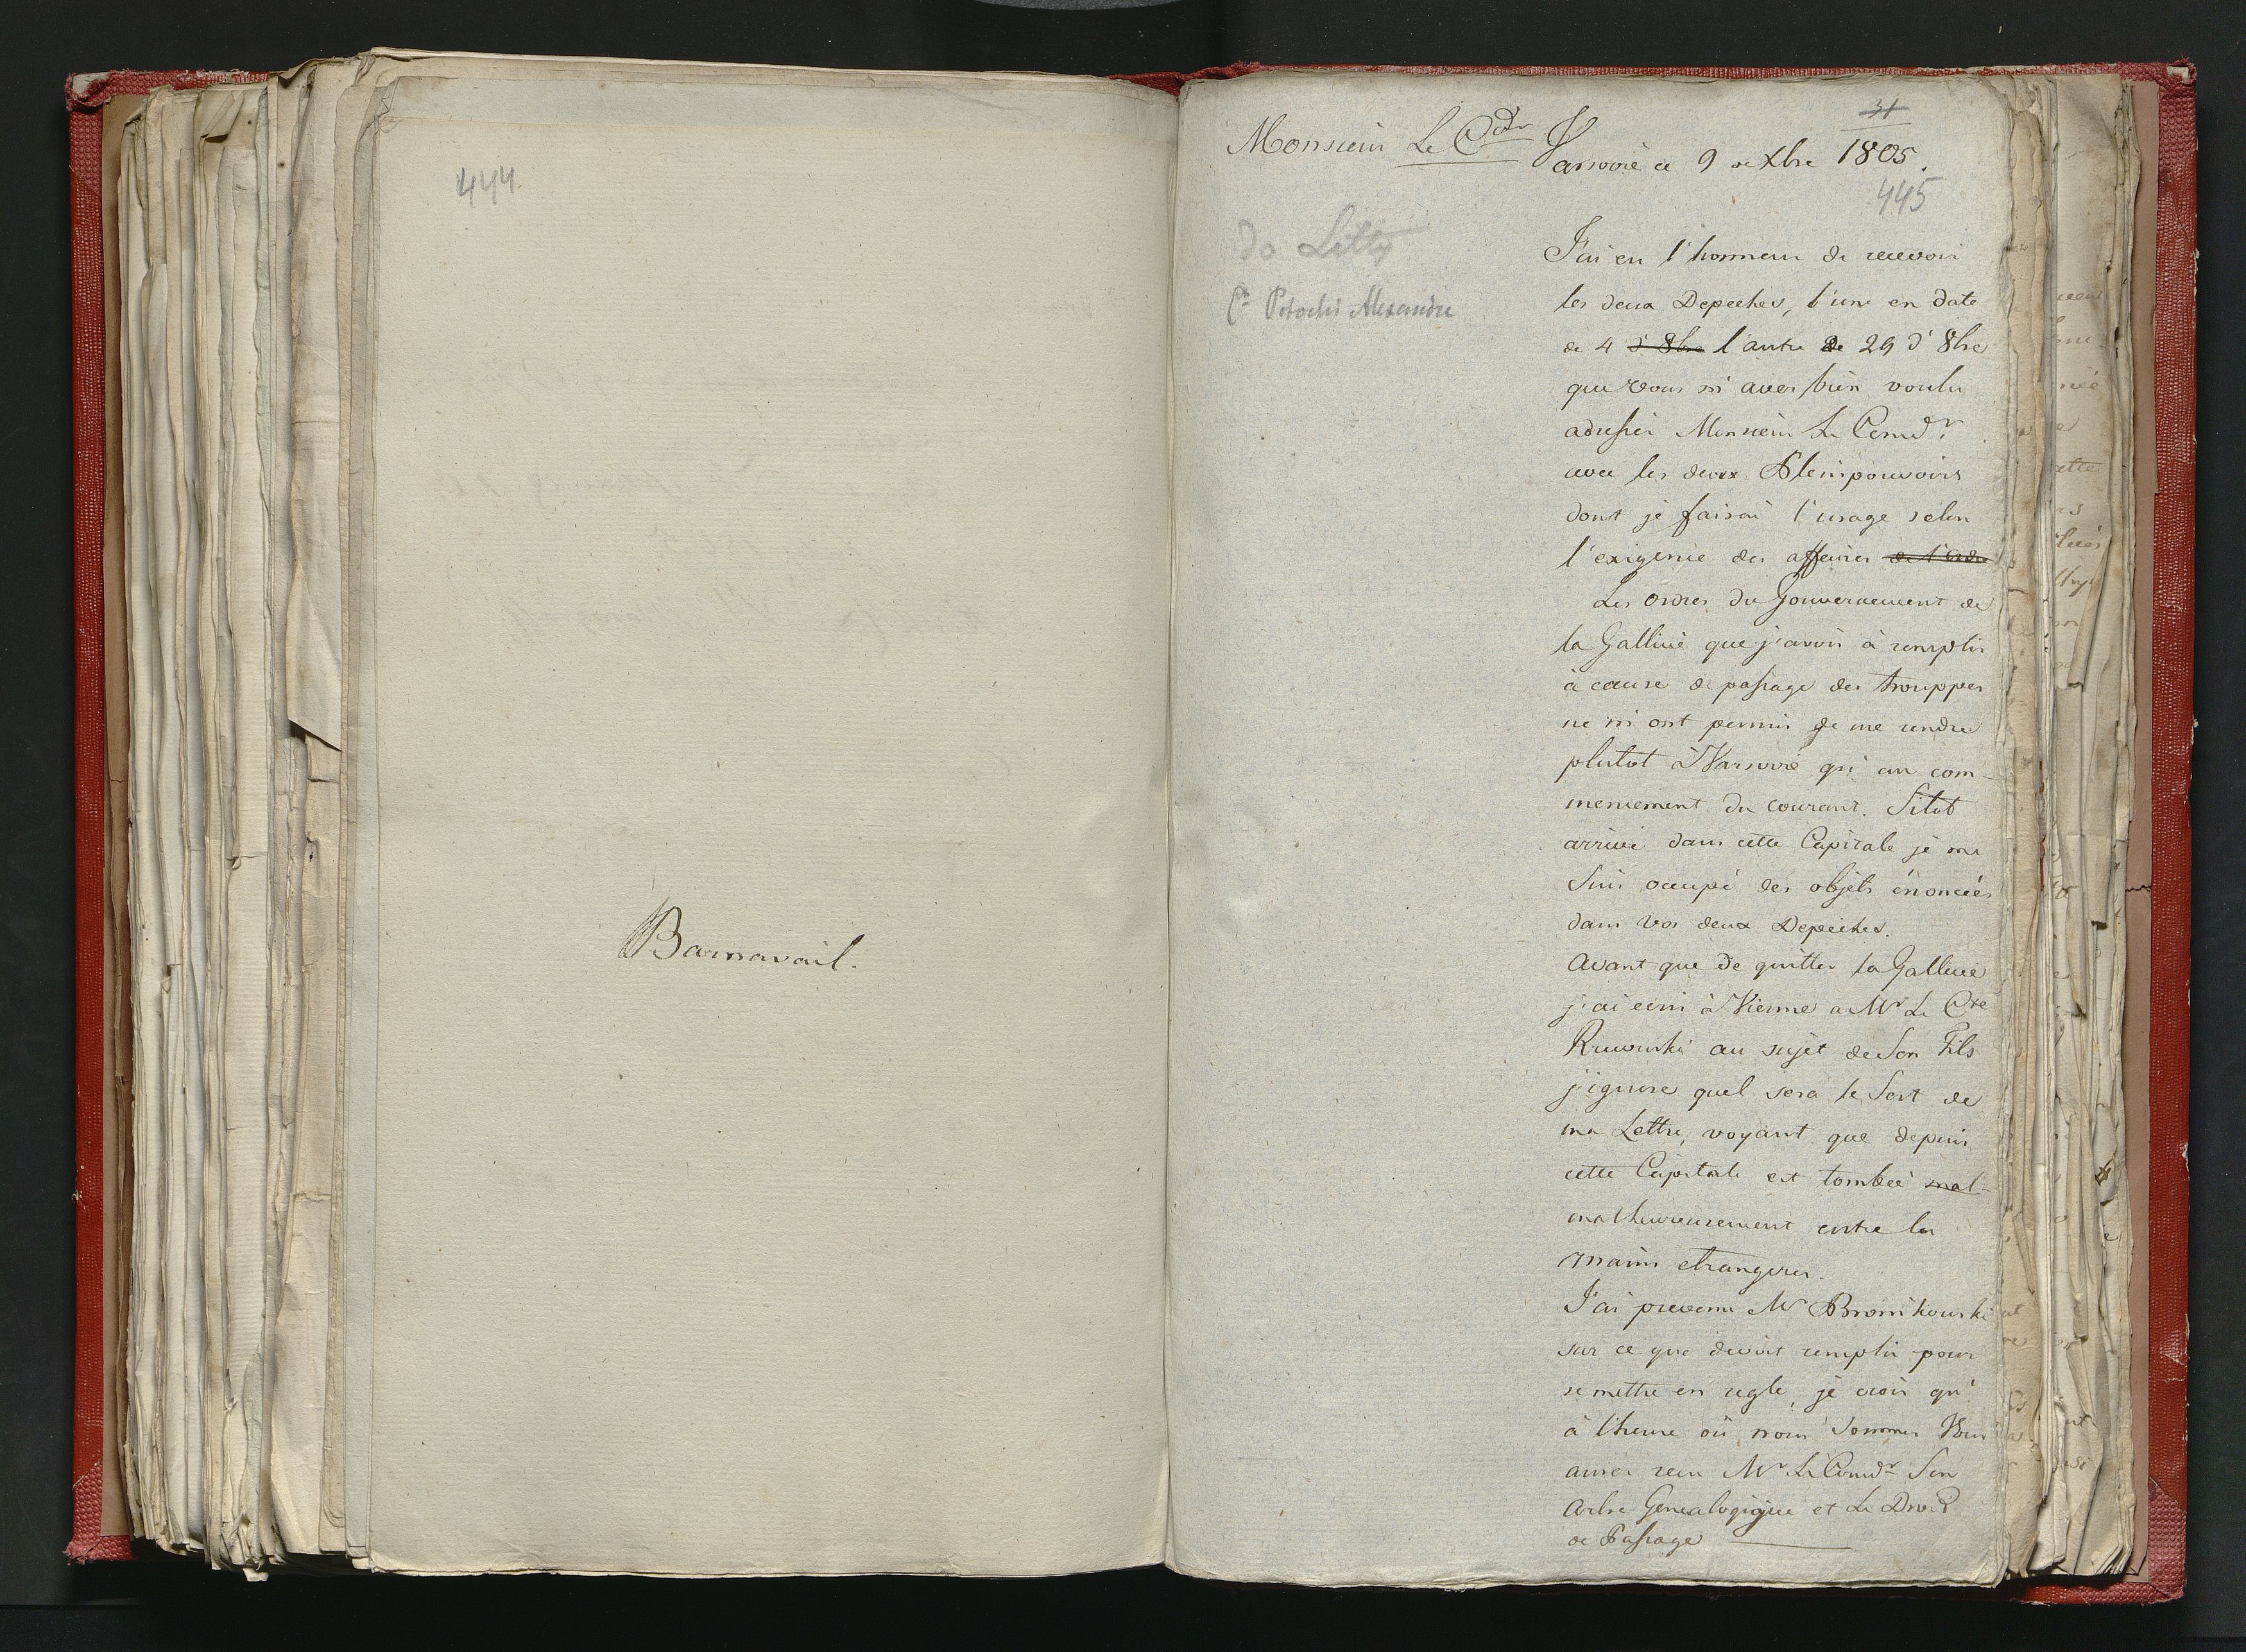 444.
Barnavail.
31
Monsieur Le Cdr
Varsovie ce 9 de Xbre 1805.
445
do Litty
Cte Potocki Alexandre
J'ai eu l'honneur de recevoir
les deux Depeches, l'une en date
de 4 d'8bre l'autre de 29 d'8bre
que vous m'avez bien voulu
adresser Monsieur Le Comdr
avec les deux Pleinpouvoirs
dont je faisai l'usage selon
l'exigence des affaires de l'ordre
Les ordres du Gouvernement de
la Gallicie que j'avois à remplir
à cause de passage des trouppes
ne m'ont permis de me rendre
plutot à Varsovie qu'au com-
mencement du courant. Sitot
arrivé dans cette Capitale je me
suis occupé des objets énoncées
dans vos deux Depeches.
Avant que de quitter la Gallicie
j'ai ecrit à Vienne a Mr Le Cte
au sujet de Son Fils
j'ignore quel sera le Sort de
ma Lettre, voyant que depuis
cette Capitale est tombée mal-
malheureusement entre les
mains etrangeres.
J'ai prevenu Mr Bronikowski
sur ce que devoit remplir pour
se mettre en regle, je crois qu'
à l'heure où nous sommes Vous
aurez recu Mr Le Comdr Son
Arbre Genealogique et Le Droit
de Passage